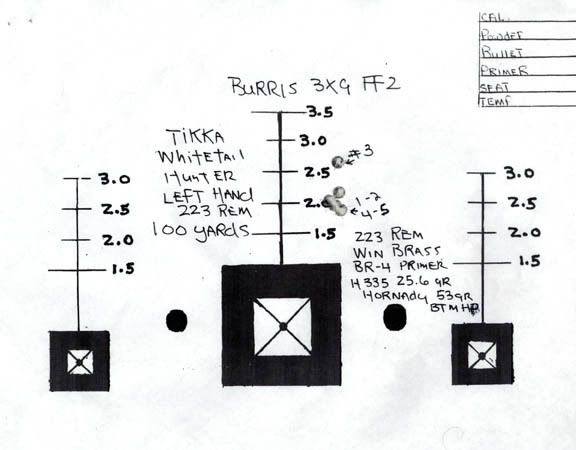 CAL.
Powder
Bullet
PRIMER
SEAT
TEMP
BURRIS 3X9 FF2
3.5
3.0
2.5
2.0
1.5
TIKKA
WhiteTail
HunTER
LEFT HAND
223 REM
100 YARDS
#3
1-2
4-5
3.0
2.5
2.0
1.5
3.0
2.5
2.0
1.5
223 REM
WIN BRASS
BR-4 PRIMER
H335 25.6 gR
HORNADY 53gR
BTMHP